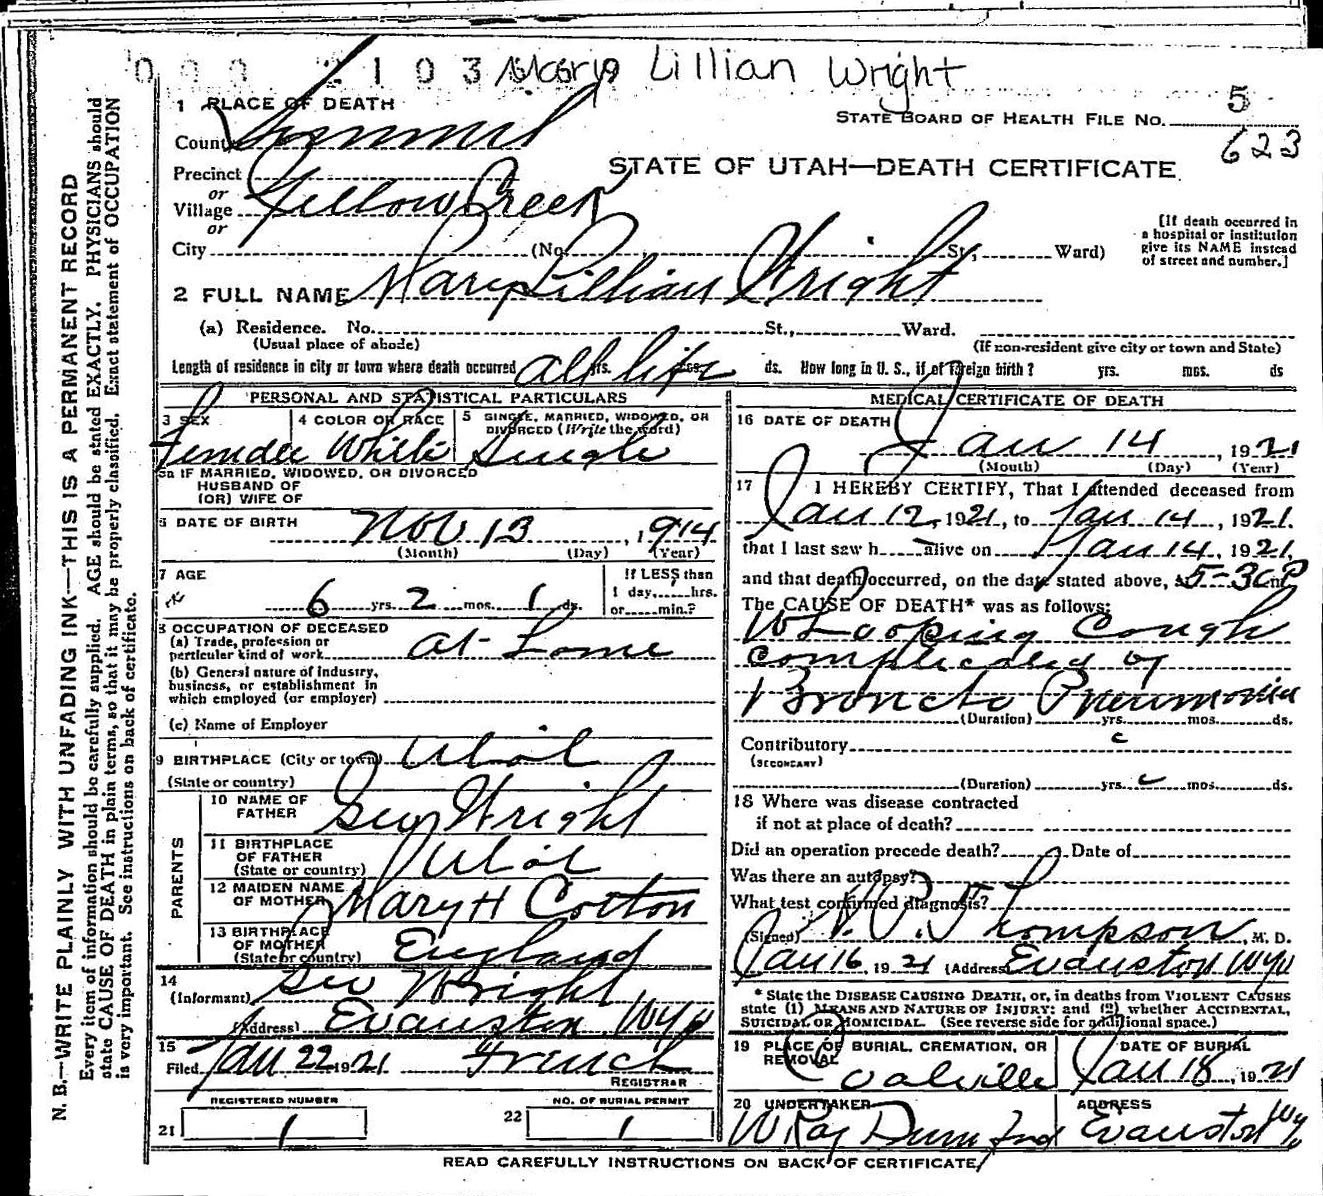 2103 Mary Lillian Wright
1 PLACE OF DEATH
STATE BOARD OF HEALTH FILE NO. 5
623
County Summit
STATE OF UTAH—DEATH CERTIFICATE
Precinct
or
Village Yellow Creek
or
City (No. St., Ward)
[If death occurred in
a hospital or institution
give its NAME instead
of street and number.]
2 FULL NAME Mary Lillian Wright
(a) Residence. No. St., Ward.
(Usual place of abode) (If non-resident give city or town and State)
Length of residence in city or town where death occurred all life ds. How long in U. S., if of foreign birth? yrs. mos. ds
PERSONAL AND STATISTICAL PARTICULARS
3 SEX Female
4 COLOR OR RACE White
5 SINGLE, MARRIED, WIDOWED, OR
DIVORCED (Write the word) Single
5a IF MARRIED, WIDOWED, OR DIVORCED
HUSBAND OF
(OR) WIFE OF
6 DATE OF BIRTH Nov 13, 1914
(Month) (Day) (Year)
7 AGE
6 yrs. 2 mos. 1 ds.
If LESS than
1 day, hrs.
or min.?
8 OCCUPATION OF DECEASED
(a) Trade, profession or
particular kind of work at home
(b) General nature of industry,
business, or establishment in
which employed (or employer)
(c) Name of Employer
9 BIRTHPLACE (City or town) Utah
(State or country)
PARENTS
10 NAME OF
FATHER Geo Wright
11 BIRTHPLACE
OF FATHER
(State or country) Utah
12 MAIDEN NAME
OF MOTHER Mary H Cotton
13 BIRTHPLACE
OF MOTHER
(State or country) England
14
(Informant) Geo Wright
(Address) Evanston Wyo
15
Filed Jan 22 1921 French
REGISTRAR
REGISTERED NUMBER
21 1
NO. OF BURIAL PERMIT
22 1
MEDICAL CERTIFICATE OF DEATH
16 DATE OF DEATH
Jan 14, 1921
(Month) (Day) (Year)
17 I HEREBY CERTIFY, That I attended deceased from
Jan 12, 1921, to Jan 14, 1921.
that I last saw h alive on Jan 14, 1921,
and that death occurred, on the day stated above, at 5-30 P
The CAUSE OF DEATH* was as follows:
Whooping Cough
complicated by
Broncho Pneumonia
(Duration) yrs. mos. ds.
Contributory
(SECONDARY)
(Duration) yrs. mos. ds.
18 Where was disease contracted
if not at place of death?
Did an operation precede death? Date of
Was there an autopsy?
What test confirmed diagnosis?
(Signed) Thompson, M. D.
Jan 16, 1921 (Address) Evanston Wyo
* State the DISEASE CAUSING DEATH, or, in deaths from VIOLENT CAUSES
state (1) MEANS AND NATURE OF INJURY; and (2) whether ACCIDENTAL,
SUICIDAL OR HOMICIDAL. (See reverse side for additional space.)
19 PLACE OF BURIAL, CREMATION, OR
REMOVAL Coalville
DATE OF BURIAL
Jan 18, 1921
20 UNDERTAKER
W Ray Dunn
ADDRESS
Evanston Wyo
READ CAREFULLY INSTRUCTIONS ON BACK OF CERTIFICATE
N. B.—WRITE PLAINLY WITH UNFADING INK—THIS IS A PERMANENT RECORD
Every item of information should be carefully supplied. AGE should be stated EXACTLY. PHYSICIANS should
state CAUSE OF DEATH in plain terms, so that it may be properly classified. Exact statement of OCCUPATION
is very important. See instructions on back of certificate.